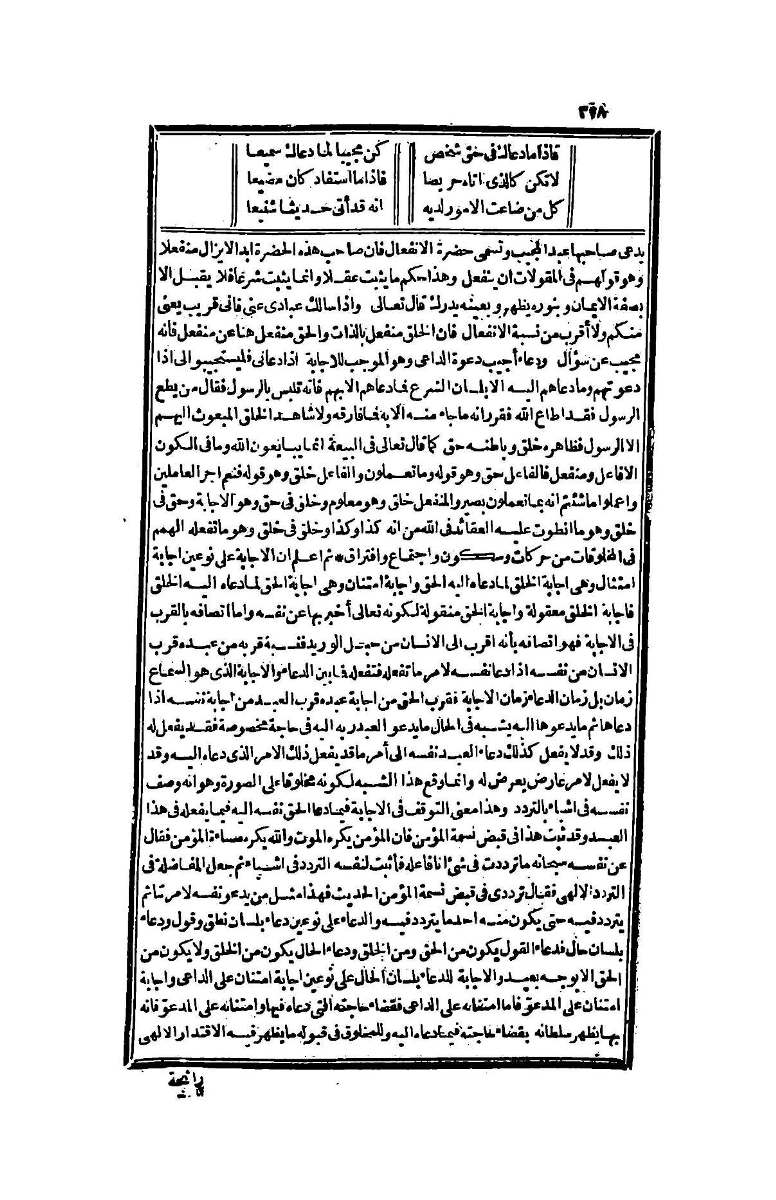 ٣٩٨
فاذا مادعاك فى حق شخص كن مجيبا لما دعاك سميعا
لاتكن كالذى اتاه حريصا فاذا ما استفاد كان مضيعا
كل من ضاعت الامور لديه انه قد أتى حديثا شنيعا
يدعى صاحبها عبد المجيب وتسمى حضرة الانفعال فان صاحب هذه الحضرة ابدا لا يزال منفعلا
وهو قولهم فى المقولات ان ينفعل وهذا حكم ما يثبت عقلا وانما يثبت شرعا فلا يقبل الا
بصفة الايمان وبنوره يظهر وبعينه يدرك قال تعالى واذا سالك عبادى عنى فانى قريب يعنى
منكم ولا أقرب من نسبة الانفعال فان الخلق منفعل بالذات والحق منفعل هنا عن منفعل فانه
مجيب عن سؤال ودعاء أجيب دعوة الداعى وهو الموجب للاجابة اذا دعانى فليستجيبوا لى اذا
دعوتهم وما دعاهم اليه الا بلسان الشرع فما دعاهم الا بهم فانه تلبس بالرسول فقال من يطع
الرسول فقد اطاع الله فقرر انه ما جاء منه الا به فما فارقه ولا شاهد الخلق المبعوث اليهم
الا الرسول فظاهره خلق وباطنه حق كما قال تعالى فى البيعة انما يبايعون الله وما فى الكون
الا فاعل ومنفعل فالفاعل حق وهو قوله وما تعملون والفاعل خلق وهو قوله فنعم اجر العاملين
واعملوا ما شئتم انه بما تعملون بصير والمنفعل خلق وهو معلوم وخلق فى حق وهو الاجابة وحق فى
خلق وهو ما انطوت عليه العقائد فى الله من انه كذا وكذا وخلق فى خلق وهو ما تفعله الهمم
فى المخلوقات من حركات وسكون واجتماع وافتراق * ثم اعلم ان الاجابة على نوعين اجابة
امتثال وهى اجابة الخلق لما دعاه اليه الحق واجابة امتنان وهى اجابة الحق لما دعاه اليه الخلق
فاجابة الخلق معقولة واجابة الحق منقولة لكونه تعالى أخبر بها عن نفسه واما اتصافه بالقرب
فى الاجابة فهو اتصافه بأنه اقرب الى الانسان من حبل الوريد فشبه قربه من عبده قرب
الانسان من نفسه اذا دعا نفسه لامر ما تفعله فتفعله فما بين الدعاء والاجابة الذى هو السماع
زمان بل زمان الدعاء زمان الاجابة فقرب الحق من اجابة عبده قرب العبد من اجابة نفسه اذا
دعاها ثم ما يدعوها اليه يشبه فى الحال ما يدعو العبد ربه اليه فى حاجة مخصوصة فقد يفعل له
ذلك وقد لا يفعل كذلك دعاء العبد نفسه الى أمر ما قد يفعل ذلك الامر الذى دعاه اليه وقد
لا يفعل لامر عارض يعرض له وانما وقع هذا الشبه لكونه مخلوقا على الصورة وهو انه وصف
نفسه فى اشياء بالتردد وهذا معنى التوقف فى الاجابة فيما دعا الحق نفسه اليه فيما يفعله فى هذا
العبد وقد ثبت هذا فى قبض نسمة المؤمن فان المؤمن يكره الموت والله يكره مساءة المؤمن فقال
عن نفسه سبحانه ما ترددت فى شئ انا فاعله فأثبت لنفسه التردد فى اشياء ثم جعل المفاضلة فى
التردد الالهى فقال ترددى فى قبض نسمة المؤمن الحديث فهذا مثل من يدعو نفسه لامر ما ثم
يتردد فيه حتى يكون منه احد ما يتردد فيه والدعاء على نوعين دعاء بلسان نطق وقول ودعاء
بلسان حال فدعاء القول يكون من الحق ومن الخلق ودعاء الحال يكون من الخلق ولا يكون من
الحق الا بوجه بعيد والاجابة للدعاء بلسان الحال على نوعين اجابة امتنان على الداعى واجابة
امتنان على المدعو فاما امتنانه على الداعى فقضاء حاجته التى دعاه فيها وامتنانه على المدعو فانه
بها يظهر سلطانه بقضاء حاجته فيما دعاه اليه وللمخلوق فى قبوله ما يظهر فيه الاقتدار الالهى
رائحة